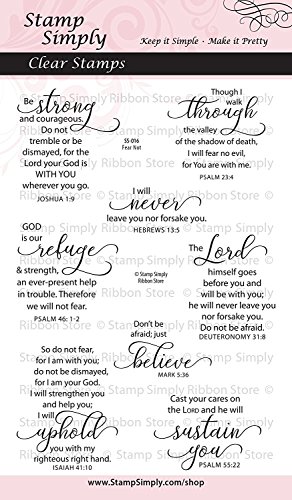 Stamp
Simply
Keep it Simple · Make it Pretty
Clear Stamps
Be strong
and courageous.
Do not
tremble or be
dismayed, for the
Lord your God is
WITH YOU
wherever you go.
JOSHUA 1:9
SS-016
Fear Not
Though I
walk
through
the valley
of the shadow of death,
I will fear no evil,
for You are with me.
PSALM 23:4
I will
never
leave you nor forsake you.
HEBREWS 13:5
GOD
is our
refuge
& strength,
an ever-present help
in trouble. Therefore
we will not fear.
PSALM 46: 1-2
© Stamp Simply
Ribbon Store
The Lord
himself goes
before you and
will be with you;
he will never leave you
nor forsake you.
Do not be afraid.
DEUTERONOMY 31:8
Don't be
afraid; just
believe
MARK 5:36
So do not fear,
for I am with you;
do not be dismayed,
for I am your God.
I will strengthen you
and help you;
I will
uphold
you with my
righteous right hand.
ISAIAH 41:10
Cast your cares on
the Lord and he will
sustain
you
PSALM 55:22
www.StampSimply.com/shop
© Stamp Simply Ribbon Store